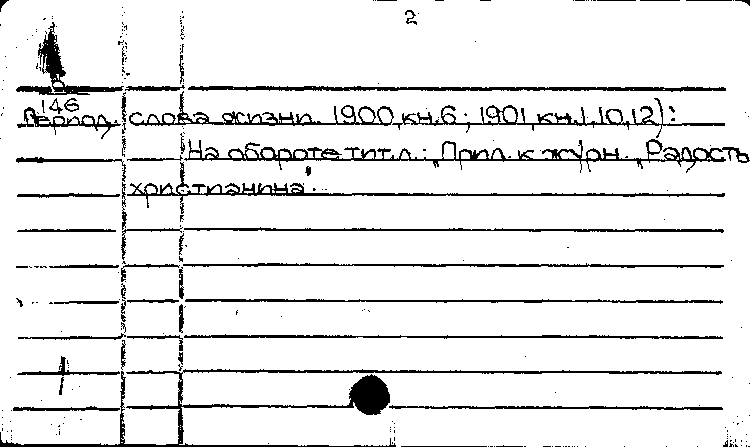 2
П
146
Период. слова жизни. 1900, кн.6; 1901, кн.1,10,12):
На обороте тит.л.: „Прил. к журн. „Радость
христианина".